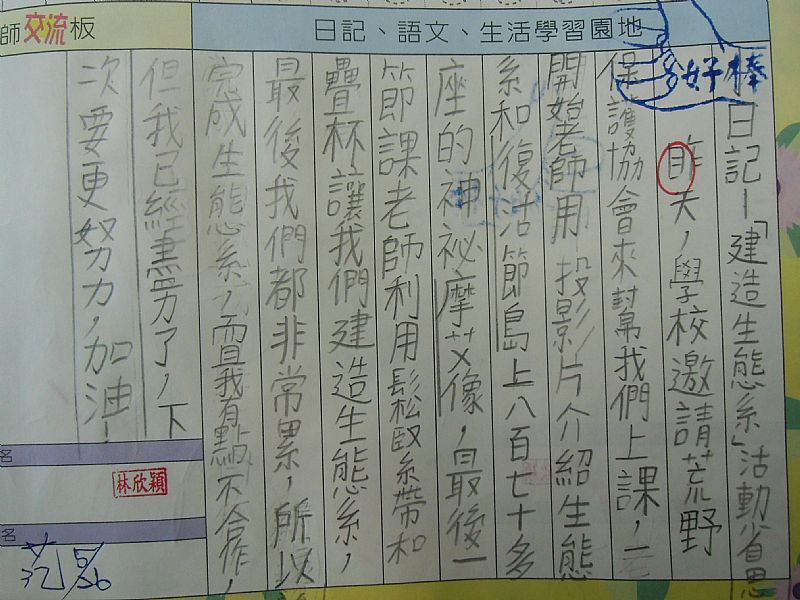 師交流板
日記、語文、生活學習園地
好棒
日記－「建造生態系」活動省思
昨天，學校邀請荒野
保護協會來幫我們上課，一
開始老師用投影片介紹生態
系和復活節島上八百七十多
座的神祕摩艹乂像，最後一
節課老師利用鬆緊帶和
疊杯讓我們建造生態系，
最後我們都非常累，所以
完成生態系，而且我有點不合作，
但我已經盡力了，下
次要更努力，加油！
名
林欣穎
名
5/26